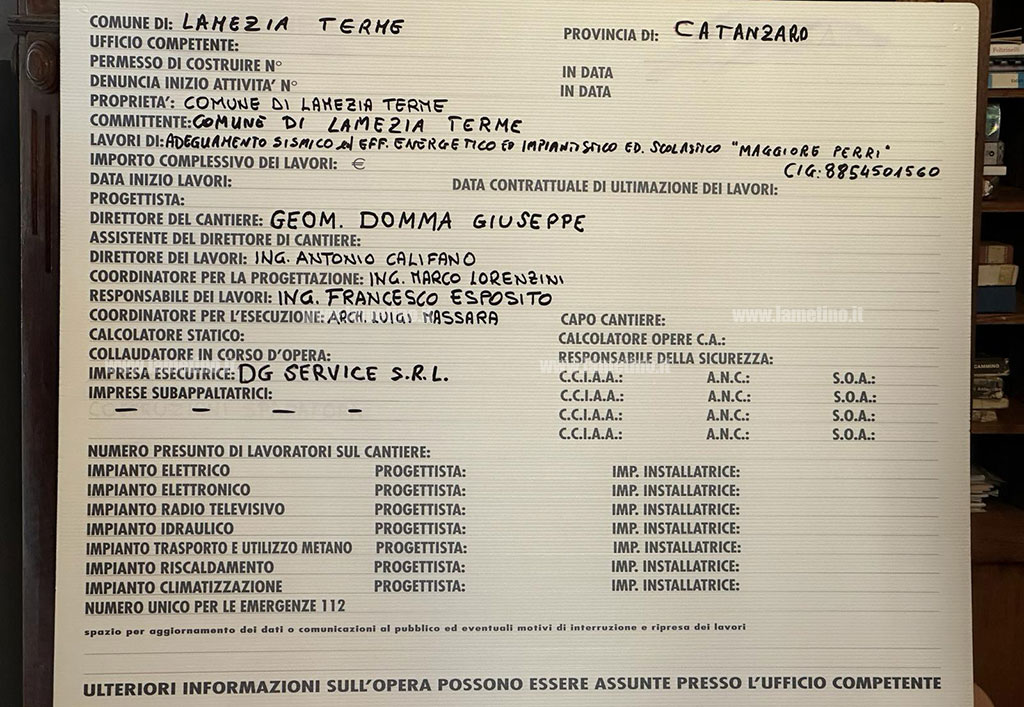 COMUNE DI: LAMEZIA TERME PROVINCIA DI: CATANZARO
UFFICIO COMPETENTE:
PERMESSO DI COSTRUIRE N° IN DATA
DENUNCIA INIZIO ATTIVITA' N° IN DATA
PROPRIETA': COMUNE DI LAMEZIA TERME
COMMITTENTE: COMUNE DI LAMEZIA TERME
LAVORI DI: ADEGUAMENTO SISMICO EFF. ENERGETICO ED IMPIANTISTICO ED. SCOLASTICO "MAGGIORE PERRI"
IMPORTO COMPLESSIVO DEI LAVORI: € CIG: 8854501560
DATA INIZIO LAVORI: DATA CONTRATTUALE DI ULTIMAZIONE DEI LAVORI:
PROGETTISTA:
DIRETTORE DEL CANTIERE: GEOM. DOMMA GIUSEPPE
ASSISTENTE DEL DIRETTORE DI CANTIERE:
DIRETTORE DEI LAVORI: ING. ANTONIO CALIFANO
COORDINATORE PER LA PROGETTAZIONE: ING. MARCO LORENZINI
RESPONSABILE DEI LAVORI: ING. FRANCESCO ESPOSITO
COORDINATORE PER L'ESECUZIONE: ARCH. LUIGI MASSARA CAPO CANTIERE: www.lametino.it
CALCOLATORE STATICO: CALCOLATORE OPERE C.A.:
COLLAUDATORE IN CORSO D'OPERA: RESPONSABILE DELLA SICUREZZA:
IMPRESA ESECUTRICE: DG SERVICE S.R.L. C.C.I.A.A.: A.N.C.: S.O.A.:
IMPRESE SUBAPPALTATRICI: C.C.I.A.A.: A.N.C.: S.O.A.:
— — — — C.C.I.A.A.: A.N.C.: S.O.A.:
C.C.I.A.A.: A.N.C.: S.O.A.:
NUMERO PRESUNTO DI LAVORATORI SUL CANTIERE:
IMPIANTO ELETTRICO PROGETTISTA: IMP. INSTALLATRICE:
IMPIANTO ELETTRONICO PROGETTISTA: IMP. INSTALLATRICE:
IMPIANTO RADIO TELEVISIVO PROGETTISTA: IMP. INSTALLATRICE:
IMPIANTO IDRAULICO PROGETTISTA: IMP. INSTALLATRICE:
IMPIANTO TRASPORTO E UTILIZZO METANO PROGETTISTA: IMP. INSTALLATRICE:
IMPIANTO RISCALDAMENTO PROGETTISTA: IMP. INSTALLATRICE:
IMPIANTO CLIMATIZZAZIONE PROGETTISTA: IMP. INSTALLATRICE:
NUMERO UNICO PER LE EMERGENZE 112
spazio per aggiornamento dei dati o comunicazioni al pubblico ed eventuali motivi di interruzione e ripresa dei lavori
ULTERIORI INFORMAZIONI SULL'OPERA POSSONO ESSERE ASSUNTE PRESSO L'UFFICIO COMPETENTE